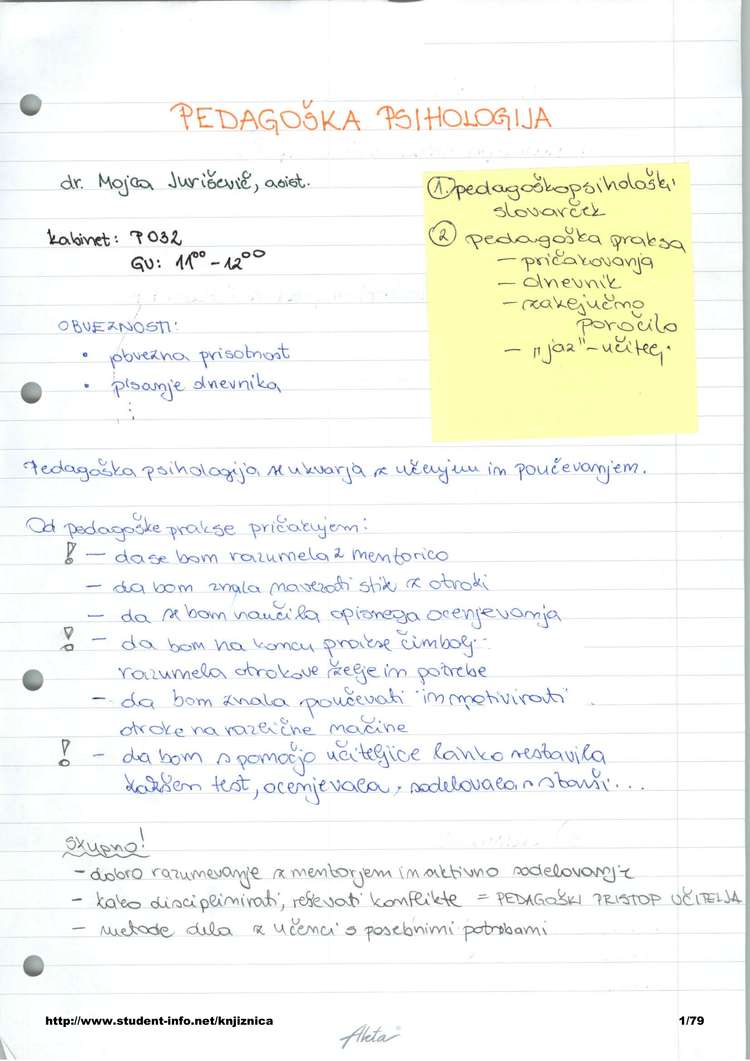 PEDAGOŠKA PSIHOLOGIJA
dr. Mojca Juriševič, asist.
kabinet: P032
GU: 11⁰⁰ - 12⁰⁰
1. pedagoškopsihološki
slovarček
2 pedagoška praksa
- pričakovanja
- dnevnik
- zaključno
poročilo
- "jaz" - učitelj
OBVEZNOSTI:
• obvezna prisotnost
• pisanje dnevnika
⋮
Pedagoška psihologija se ukvarja z učenjem in poučevanjem.
Od pedagoške prakse pričakujem:
! - da se bom razumela z mentorico
- da bom znala navezati stik z otroki
- da se bom naučila opisnega ocenjevanja
! - da bom na koncu prakse čimbolj
razumela otrokove želje in potrebe
- da bom znala poučevati in motivirati
otroke na različne načine
! - da bom s pomočjo učiteljice lahko sestavila
kakšen test, ocenjevala, sodelovala s starši...
Skupno!
- dobro razumevanje z mentorjem in aktivno sodelovanje
- kako disciplinirati, reševati konflikte = PEDAGOŠKI PRISTOP UČITELJA
- metode dela z učenci s posebnimi potrebami
http://www.student-info.net/knjiznica
1/79
Akta